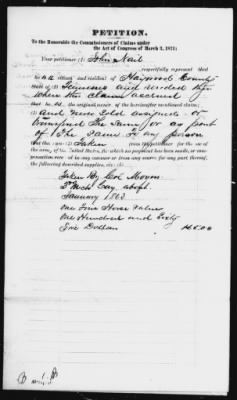 PETITION.
To the Honorable the Commissioners of Claims under
the Act of Congress of March 3, 1871:
Your petitioner (1) John Nail
respectfully represent that
he is a citizen and resident of Haywood County
State of (2) Tennessee and resided there
when the claim accrued
that he the original owner of the hereinafter mentioned claim; (1)
and never sold assigned or
transferred the same or any part
of the same to any person
that the same (2) Taken for the use of the
army of the United States, for which no payment has been made, or compensation
received by him of any manner or from any source for any part thereof, the
following described supplies, viz:
Taken By Col
3d Mich Cav about
January 1863
One Fine Horse Value
One Hundred and Sixty
Five Dollars